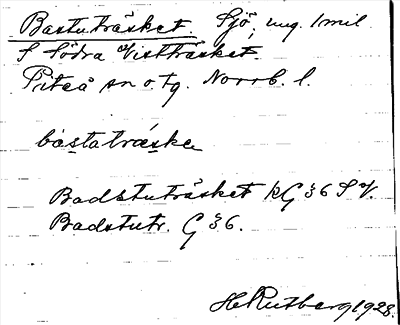 Bastuträsket. Sjö, ung. 1 mil
S Södra Vistträsket.
Piteå sn o. tg. Norrb. l.
bastatræske
Badstuträsket kG 36 S V.
Badstutr. G 36.
H Rutberg 1928.